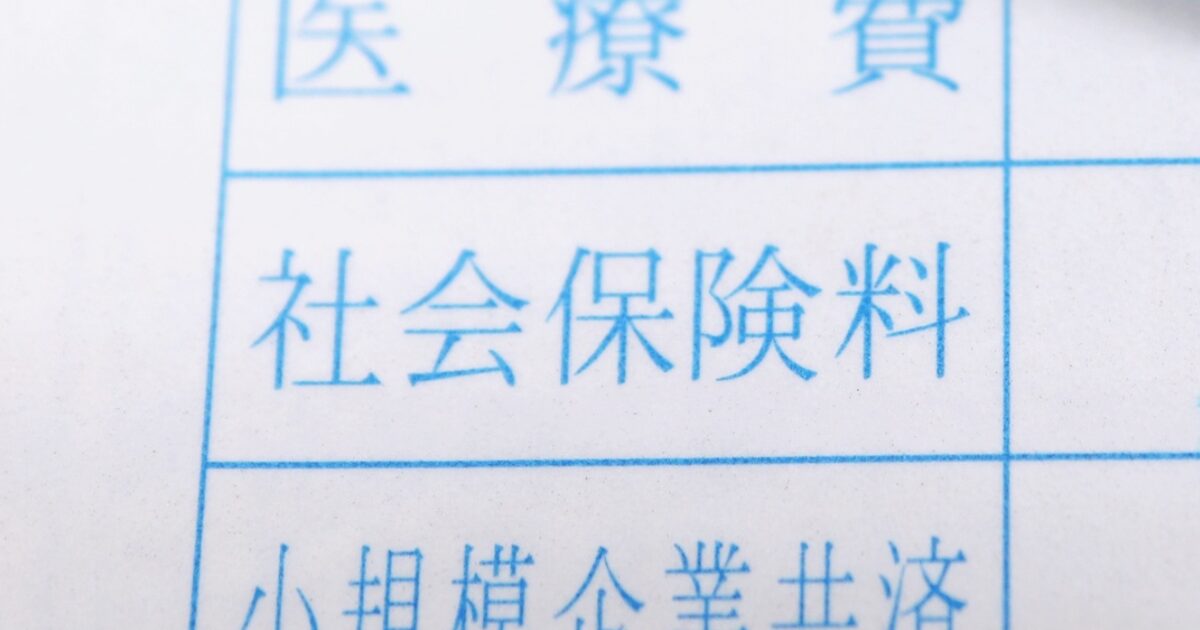 医療費
社会保険料
小規模企業共済